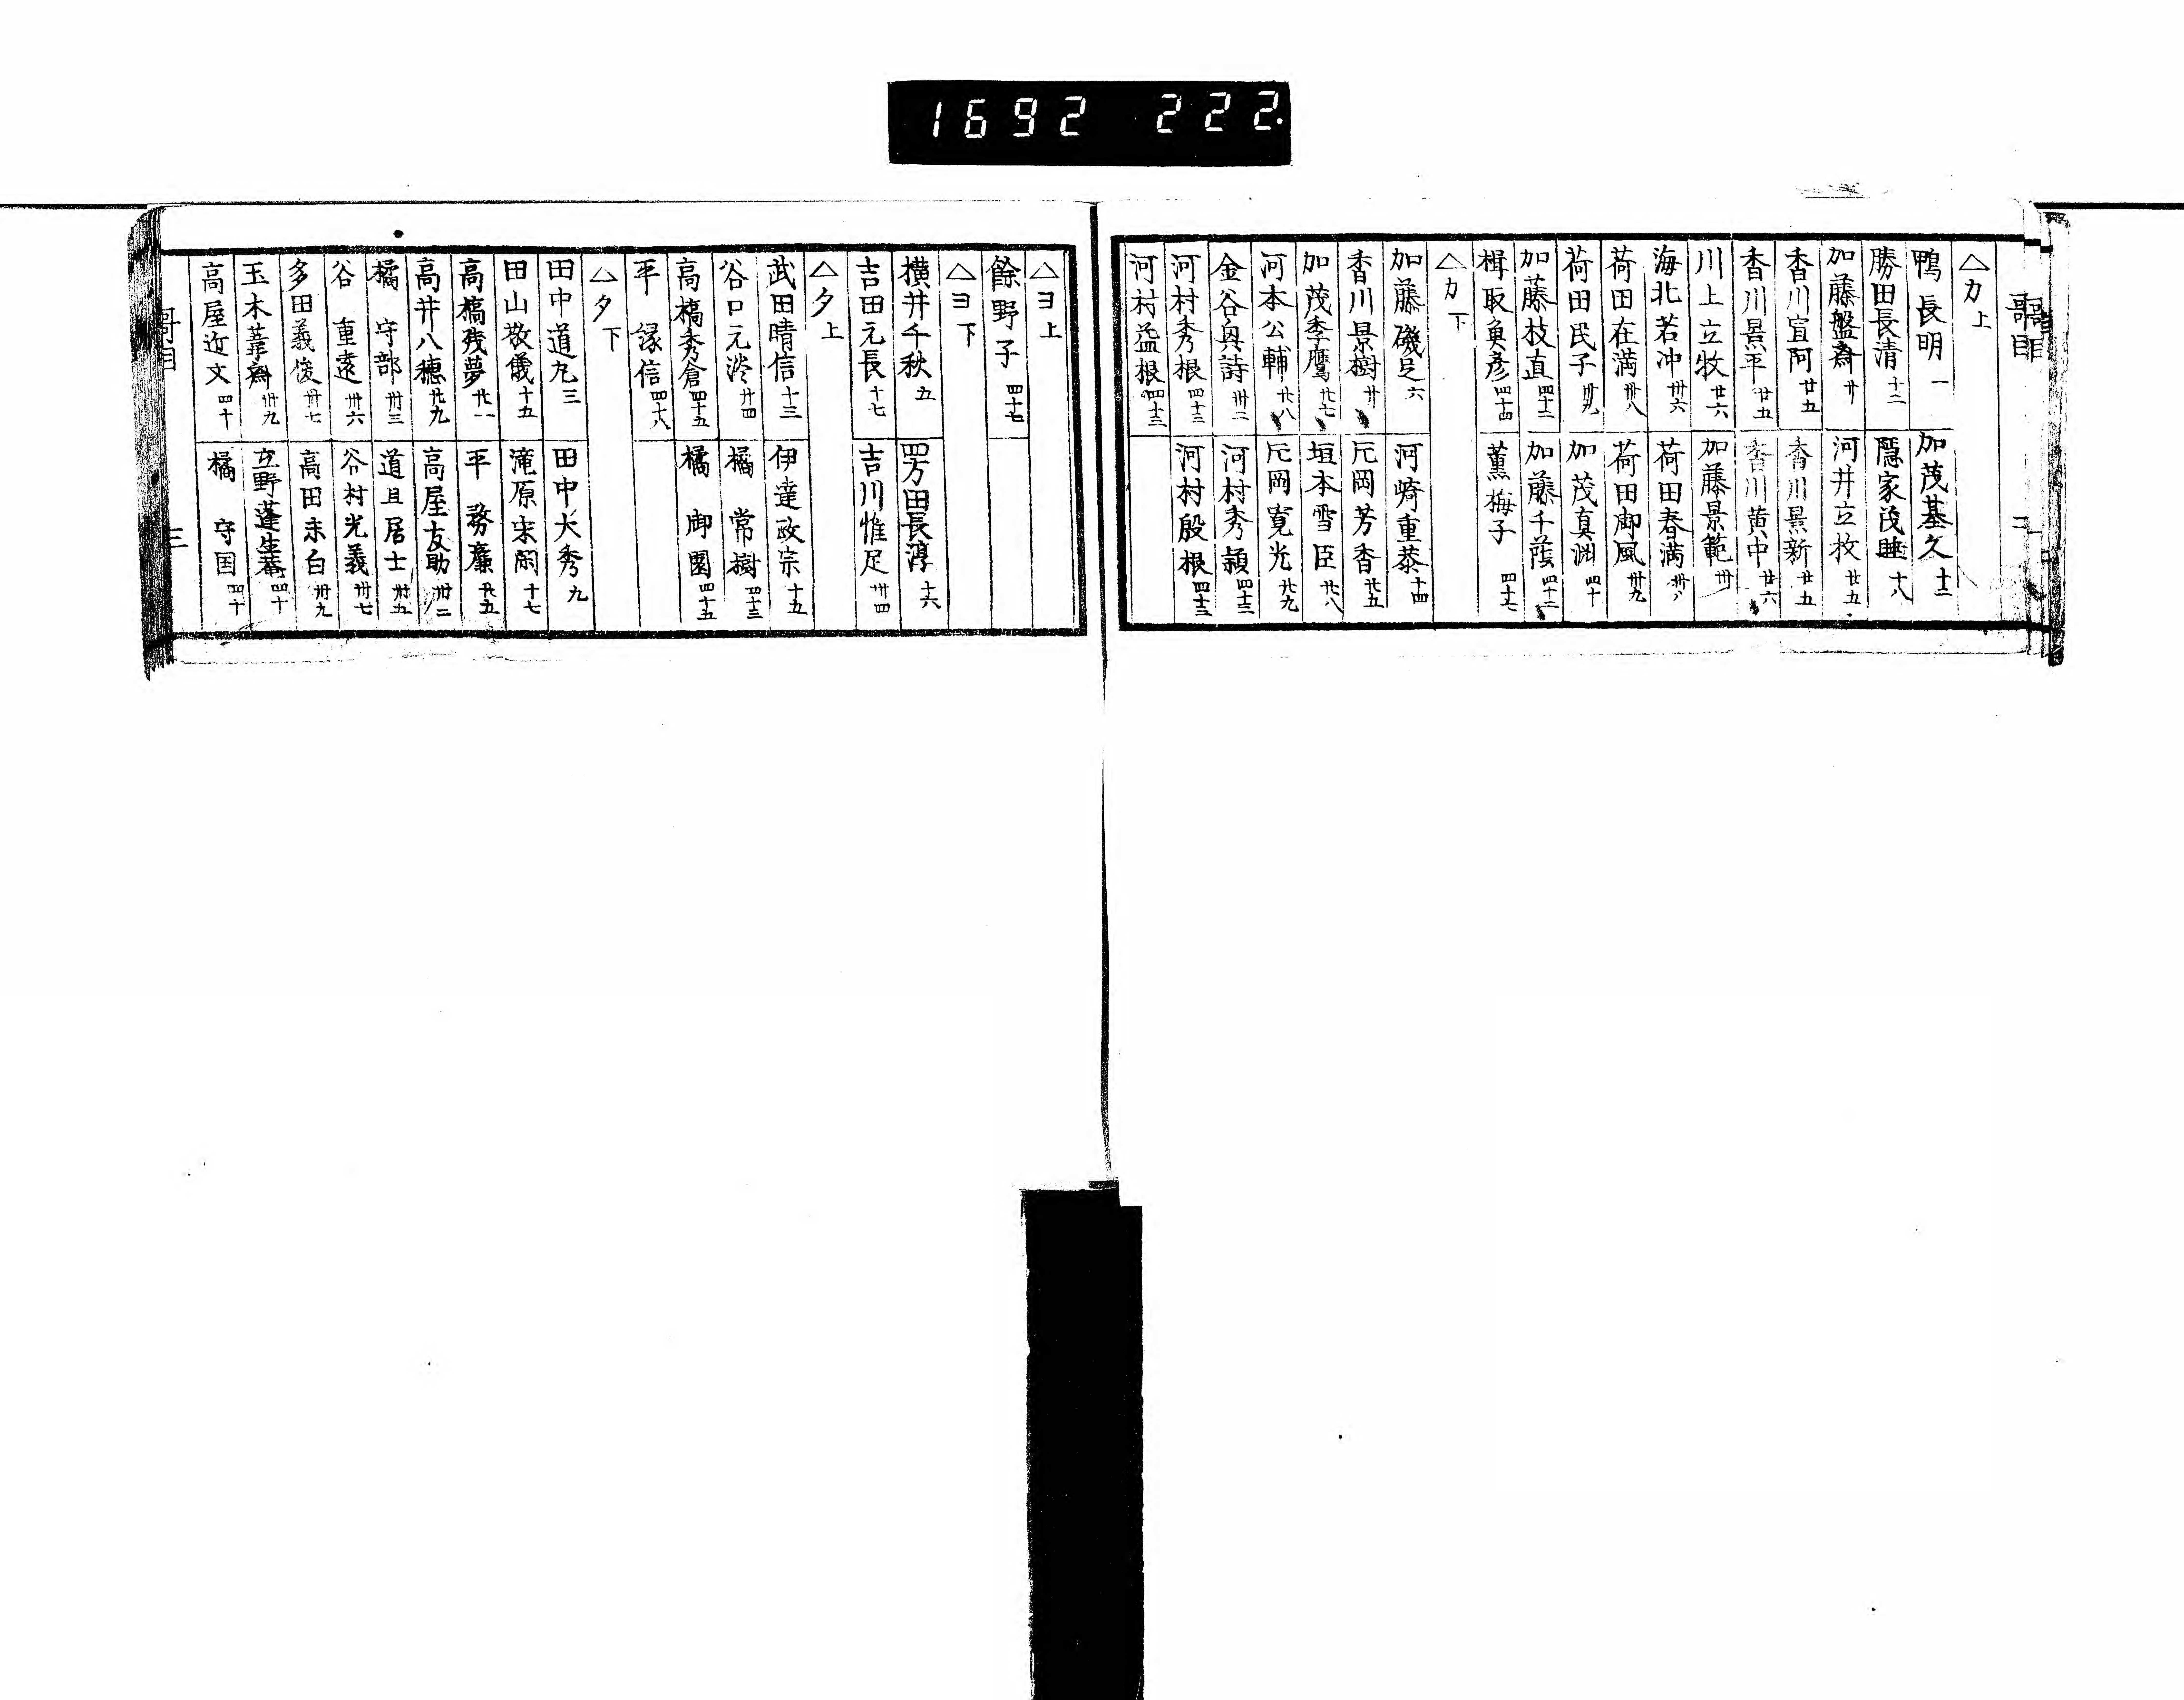 1692 222.
哥目 二
△カ上
鴨長明 一 加茂基久 十三
勝田長清 十二 隠家茂睡 十八
加藤盤斎 廿 河井立牧 廿五
香川宣阿 廿五 香川景新 廿五
香川景平 廿五 香川黄中 廿六
川上立牧 廿六 加藤景範 卅
海北若冲 卅六 荷田春満 卅八
荷田在満 卅八 荷田御風 卅九
荷田民子 卅九 加茂真渕 四十
加藤枝直 四十二 加藤千蔭 四十二
楫取魚彦 四十四 薫梅子 四十七
△カ下
加藤磯足 六 河崎重恭 十四
香川景樹 廿 片岡芳香 廿五
加茂季鷹 廿七 垣本雪臣 廿八
河本公輔 廿八 片岡寛光 廿九
金谷與詩 卅二 河村秀頴 四十三
河村秀根 四十三 河村殷根 四十三
河村益根 四十三
△ヨ上
餘野子 四十七
△ヨ下
横井千秋 五 四方田長淳 十六
吉田元長 十七 吉川惟足 卅四
△タ上
武田晴信 十三 伊達政宗 十五
谷口元淡 廿四 橘常樹 四十三
高橋秀倉 四十五 橘御園 四十五
平縁信 四十八
△タ下
田中道九 三 田中大秀 九
田山敬儀 十五 滝原宋閑 十七
高橋残夢 廿一 平務廉 廿五
高井八穂 廿九 高屋友助 卅二
橘守部 卅三 道旦居士 卅五
谷重遠 卅六 谷村光義 卅七
多田義俊 卅七 高田未白 卅九
玉木葦斎 卅九 立野蓬生菴 四十
高屋近文 四十 橘守国 四十
哥目 三